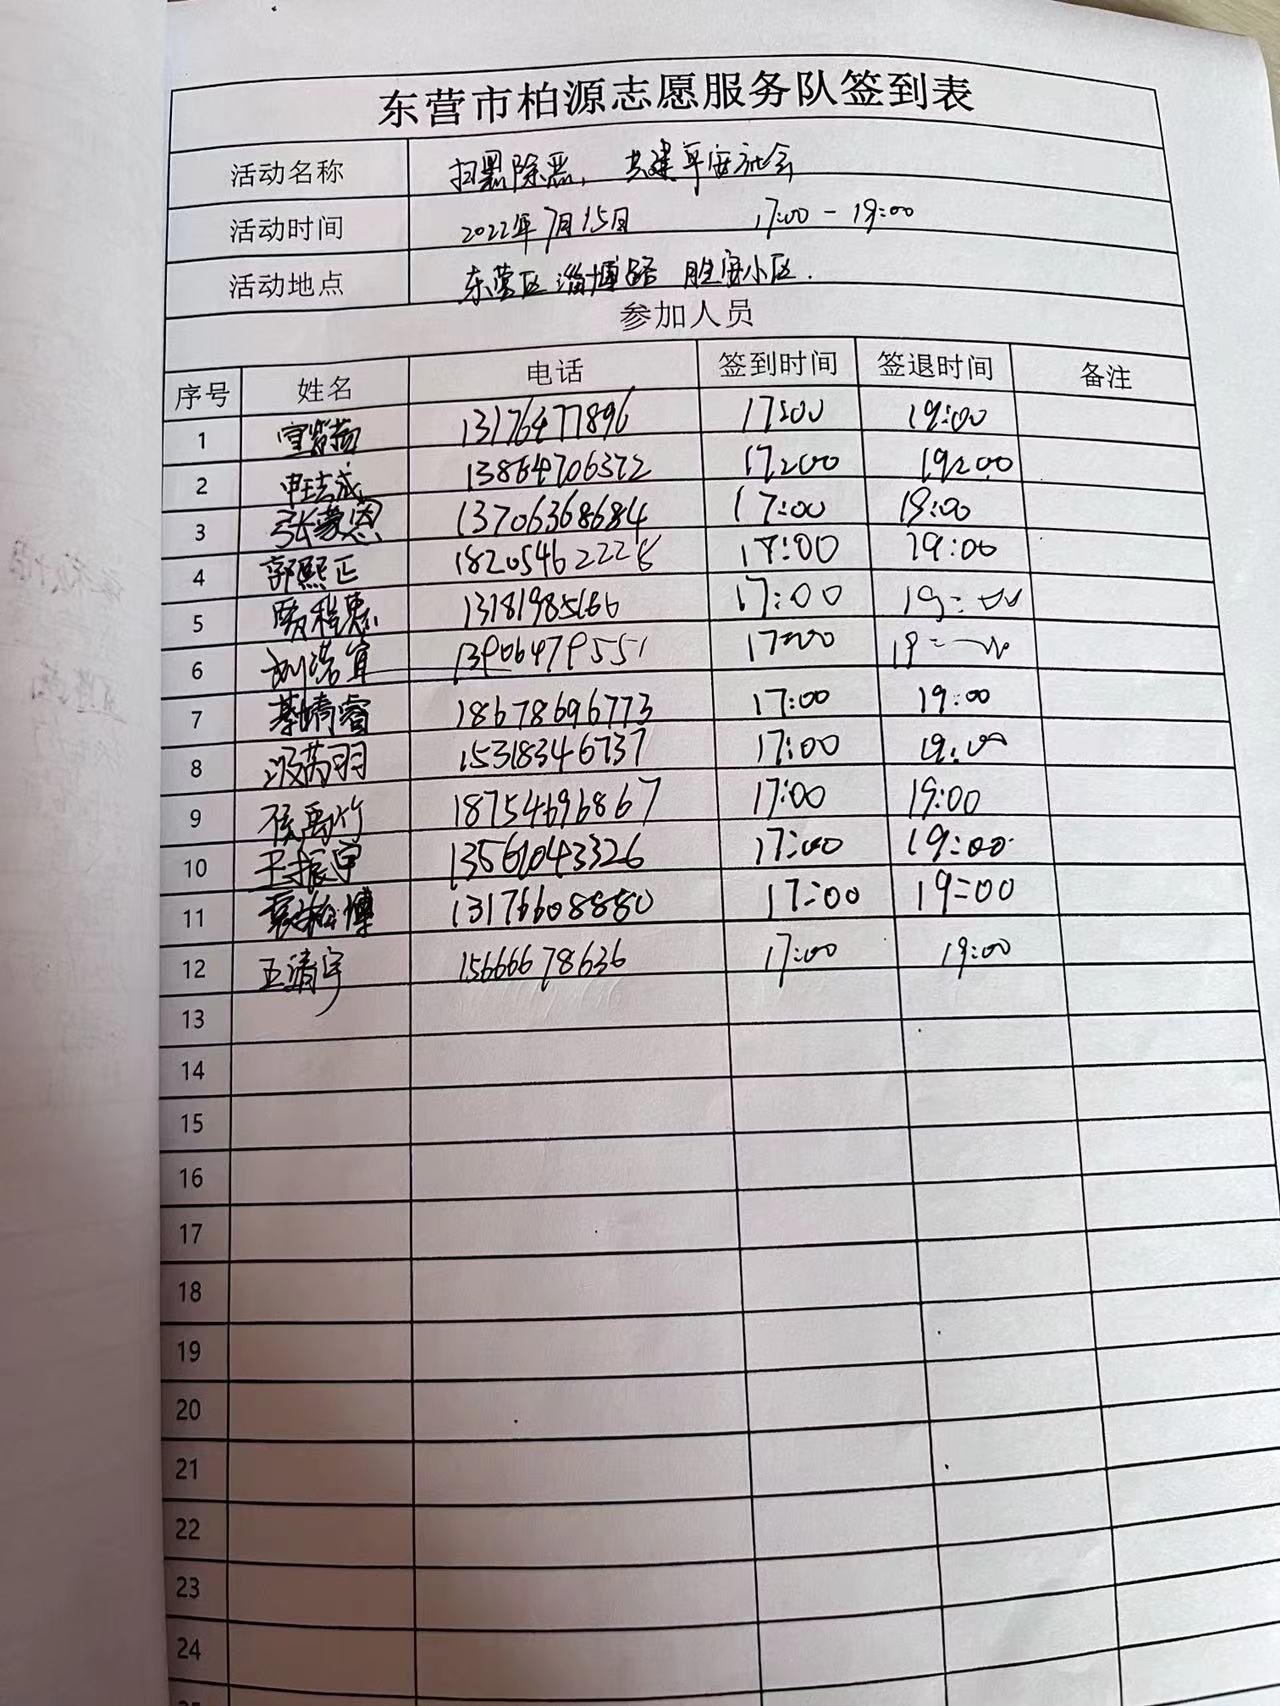 东营市柏源志愿服务队签到表
活动名称 扫黑除恶，共建平安社会
活动时间 2022年7月15日 17:00-19:00
活动地点 东营区淄博路 胜安小区.
参加人员
序号 姓名 电话 签到时间 签退时间 备注
1 13176477896 17:00 19:00
2 13864706372 17:00 19:00
3 张蒙恩 13706368684 17:00 19:00
4 郭熙正 18205462228 17:00 19:00
5 13181985166 17:00 19:00
6 刘浩宜 13906479551 17:00
7 綦晴睿 18678696773 17:00 19:00
8 15318346737 17:00 19:00
9 18754696867 17:00 19:00
10 王振宇 13561043326 17:00 19:00
11 13176608880 17:00 19:00
12 王清宇 15666678636 17:00 19:00
13
14
15
16
17
18
19
20
21
22
23
24